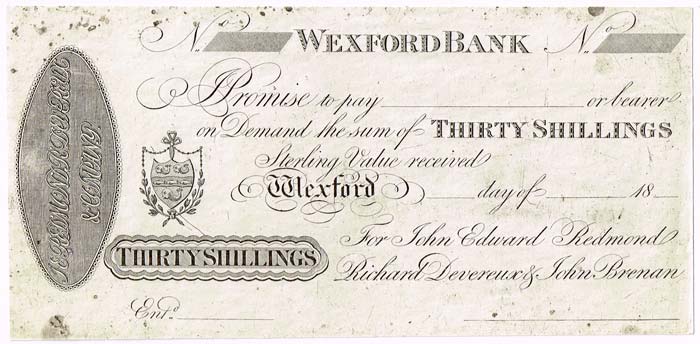 No WEXFORD BANK No
I Promise to pay or bearer
on Demand the sum of THIRTY SHILLINGS
Sterling Value received
Wexford day of 18
THIRTY SHILLINGS
For John Edward Redmond
Richard Devereux & John Brenan
Entd